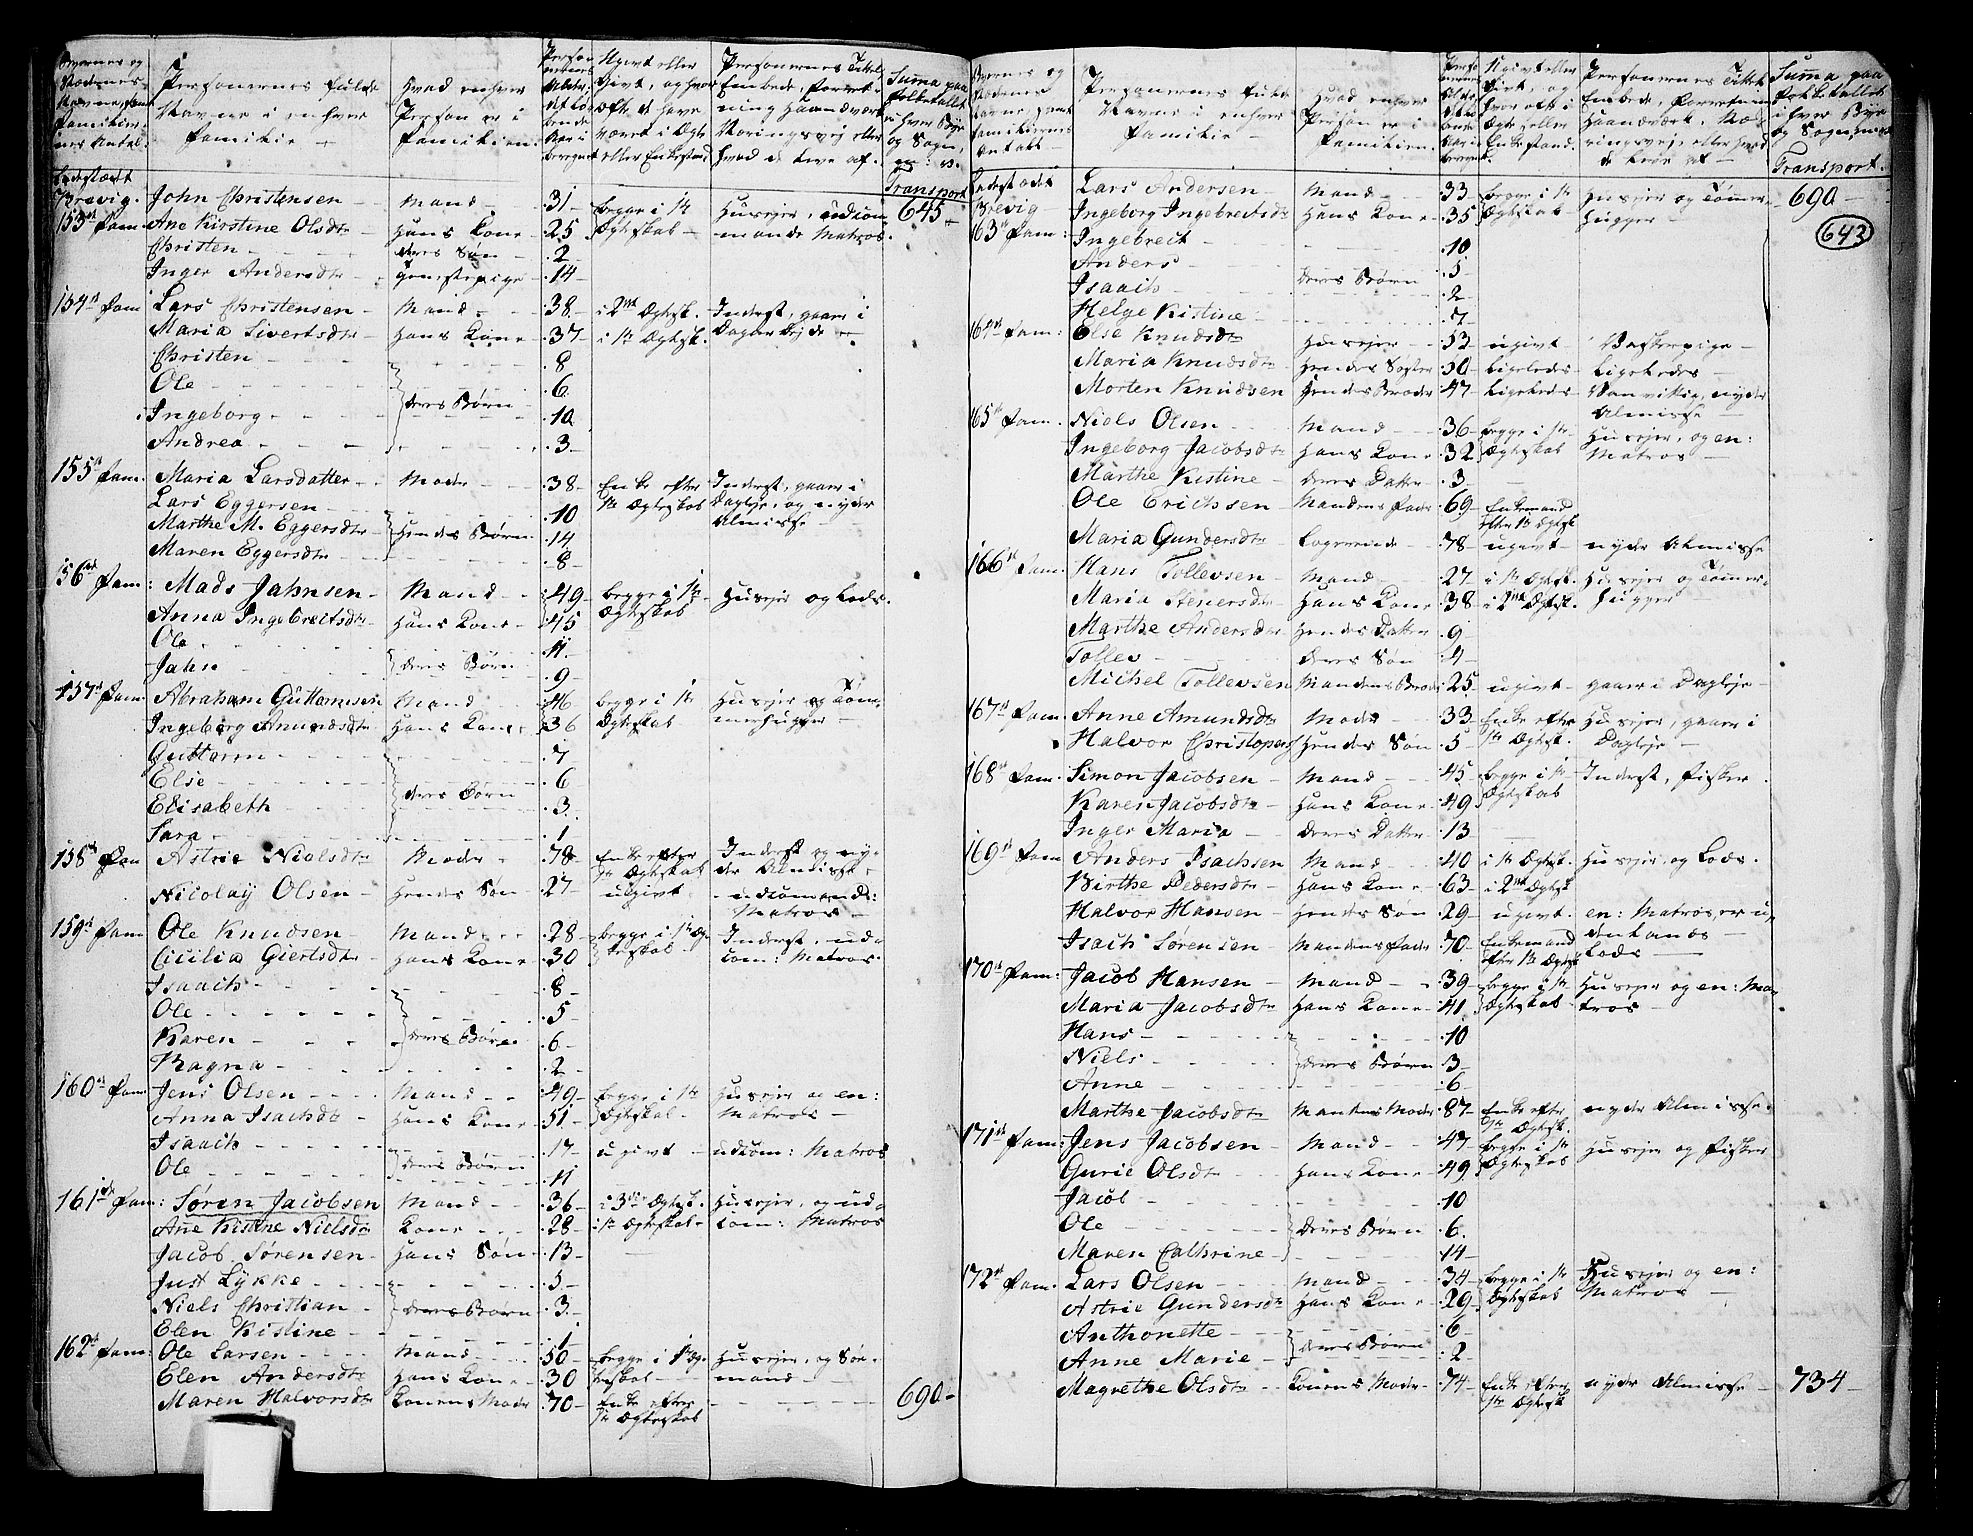 Personernes fulde Navne i enhver Familie
Hvad enhver Person er i Familien
Summa paa Folketallet i hver Bye og Sogn
Transport
Ladestædet
Brevig. John Christensen Mand 31 begge i 1te Husejer, udcom 645
153de Fam. Ane Kirstine Olsdtr Hans Kone 25 Ægteskab mande Matros
Christen deres Søn 2
Inger Andersdtr Tjenestepige 14
154de Fam Lars Christensen Mand 38 i 2det Ægtesk. Inderst, gaaer i
Maria Sivertsdtr Hans Kone 37 i 1te Ægtesk. Dagarbejde
Christen 8
Ole 6
deres Børn
Ingeborg 10
Andrea 3
155de Fam. Maria Larsdatter Moder 38 Enke efter Inderst, gaaer i
Lars Eggersen 10 1te Ægteskab Dagleje, og nyder
Marthe M. Eggersdtr Hendes Børn 14 Almisse
Maren Eggersdtr 8
156de Fam: Mads Jahnsen Mand 49 begge i 1te Husejer og Lods
Anna Ingebreitsdtr Hans Kone 45 Ægteskab
Ole 11
Jahn deres Børn 9
157de Fam. Abraham Guttormsen Mand 46 begge i 1te Husejer og Tøm
Ingeborg Amundsdtr Hans Kone 36 Ægteskab merhugger
Guttorm 7
Else 6
deres Børn
Elisabeth 3
Sara 1
158de Fam Astrie Nielsdtr Moder 78 Enke efter Inderst og ny
1te Ægteskab der Almisse
Nicolay Olsen Hendes Søn 27 ugivt udcommande:
Matros
159de Fam Ole Knudsen Mand 28 begge i 1te Æg Inderst, ud
Cicilia Giertsdtr Hans Kone 30 teskab com: Matros
Isaach 8
Ole 5
Karen deres Børn 6
Ragna 2
160de Fam: Jens Olsen Mand 49 begge i 1te Husejer og en:
Anna Isachsdtr Hans Kone 51 Ægteskab Matros
Isaach 17 ugivt udcom: Matros
Ole deres Børn 11
161de Fam: Søren Jacobsen Mand 36 i 3die Ægtesk. Husejer, og ud
Ane Kistine Nielsdtr Kone 28 i 1te Ægteskab com: Matros
Jacob Sørensen Hans Søn 13
Just Lykke 5
Niels Christian deres Børn 3
Elen Kistine 1
162de Fam: Ole Larsen Mand 50 begge i 1te Æg Husejer, og Søe
Elen Andersdtr Hans Kone 30 teskab mand
Maren Halvorsdtr Konens Moder 70 Enke efter 690
1te Ægteskab
Personernes fulde Navne i enhver Familie
Hvad enhver Person er i Familien
Summa paa Folketallet i hver Bye og Sogn
Transport.
Ladestædet Lars Andersen Mand 33 begge i 1te Husejer og Tømer 690
Brevig Ingeborg Ingebreitsdtr Hans Kone 35 Ægteskab hugger
642
63de Fam: Ingebreit 10
Anders 5
Isaach deres Børn 2
Helge Kistine
164de Fam: Else Knudsdtr Husejer 53 ugivt
Maria Knudsdtr Hendes Søster 50 Ligeledes Ligeledes
Morten Knudsen Hendes Broder 47 Ligeledes Vanvittig, nyder
Almisse
165de Fam. Niels Olsen Mand 36 begge i 1te Husejer, og en:
Ingeborg Jacobsdtr Hans Kone 32 Ægteskab Matros
Marthe Kistine deres Datter 3
Ole Erichsen Mandens Fader 69 Enkemand
efter 1te Ægtesk
Maria Gundersdtr Logerende 78 ugivt nyder Almisse
166de Fam. Hans Tollevsen Mand 27 i 1te Ægtesk. Husejer og Tømer
Maria Steenersdtr Hans Kone 38 i 2det Ægtesk. hugger
Marthe Andersdtr Hendes Datter 9
Tollev deres Søn 4
Michel Tollevsen Mandens Broder 25 ugivt gaaer i Dagleje
167de Fam Anne Amundsdtr Moder 33 Enke efter Husejer, gaaer i
Halvor Christopers Hendes Søn 5 1te Ægtesk. Dagleje
168de Fam. Simon Jacobsen Mand 45 begge i 1te Inderst, Fisker
Karen Jacobsdtr Hans Kone 49 Ægteskab
Inger Maria deres Datter 13
169de Fam Anders Isachsen Mand 40 i 1te Ægtesk. Husejer, og Lods
Birthe Pedersdtr Hans Kone 63 i 2det Ægtesk
Halvor Hansen Hendes Søn 29 ugivt en: Matros, er u
denlands
Isach Sørensen Mandens Fader 70 Enkemand Lods
efter 1te Ægtesk
170de Fam: Jacob Hansen Mand 39 begge i 1te Husejer og en: Ma
Maria Jacobsdtr Hans Kone 41 Ægteskab tros
Hans 10
Niels deres Børn 3
Anne 6
Marthe Jacobsdtr Mandens Moder 87 Enke efter nyder Almisse
1te Ægtesk.
171de Fam: Jens Jacobsen Mand 47 begge i 1te Husejer og Fisker
Gurie Olsdtr Hans Kone 49 Ægteskab
Jacob 10
Ole deres Børn 6
Maren Cathrine 14
172de Fam. Lars Olsen Mand 34 begge i 1te Husejer og en:
Astrie Gundersdtr Hans Kone 29 Ægteskab Matros
Anthonette 6
Anne Marie deres Børn 2
Magrethe Olsdtr Konens Moder 74 Enke efter nyder Almisse 734
1te Ægtesk